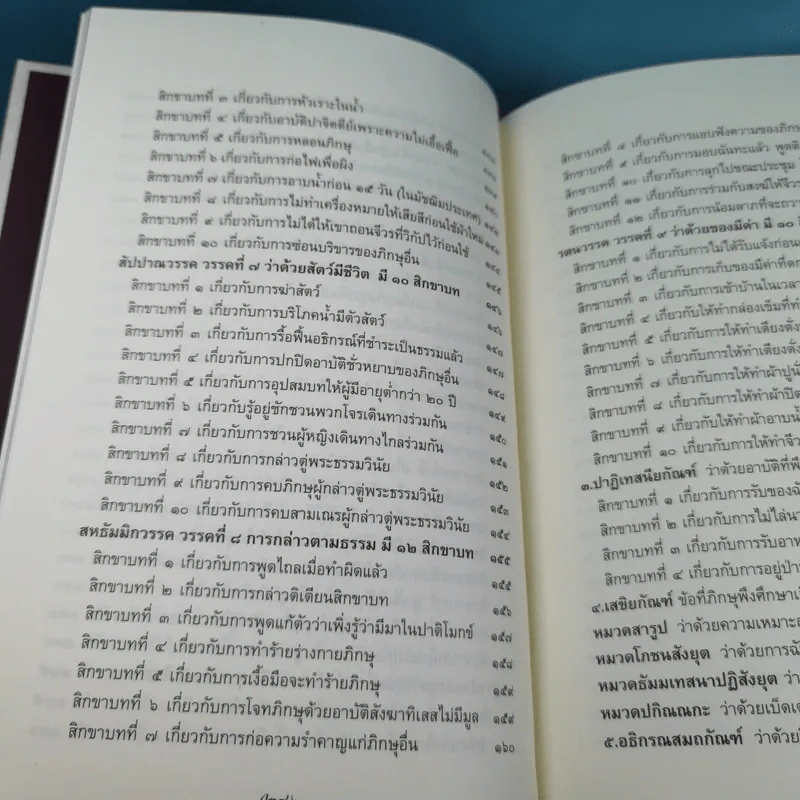 สิกขาบทที่ ๓ เกี่ยวกับการหัวเราะในน้ำ
สิกขาบทที่ ๔ เกี่ยวกับอาบัติปาจิตตีย์เพราะความไม่เอื้อเฟื้อ
สิกขาบทที่ ๕ เกี่ยวกับการหลอนภิกษุ
สิกขาบทที่ ๖ เกี่ยวกับการก่อไฟเพื่อผิง
สิกขาบทที่ ๗ เกี่ยวกับการอาบน้ำก่อน ๑๕ วัน (ในมัชฌิมประเทศ)
สิกขาบทที่ ๘ เกี่ยวกับการไม่ทำเครื่องหมายให้เสียสีก่อนใช้ผ้าใหม่
สิกขาบทที่ ๙ เกี่ยวกับการไม่ได้ให้เขาถอนจีวรที่วิกัปไว้ก่อนใช้
สิกขาบทที่ ๑๐ เกี่ยวกับการซ่อนบริขารของภิกษุอื่น ๑๔๕
สัปปาณวรรค วรรคที่ ๗ ว่าด้วยสัตว์มีชีวิต มี ๑๐ สิกขาบท ๑๔๖
สิกขาบทที่ ๑ เกี่ยวกับการฆ่าสัตว์
สิกขาบทที่ ๒ เกี่ยวกับการบริโภคน้ำมีตัวสัตว์ ๑๔๖
สิกขาบทที่ ๓ เกี่ยวกับการรื้อฟื้นอธิกรณ์ที่ชำระเป็นธรรมแล้ว ๑๔๗
สิกขาบทที่ ๔ เกี่ยวกับการปกปิดอาบัติชั่วหยาบของภิกษุอื่น ๑๔๗
สิกขาบทที่ ๕ เกี่ยวกับการอุปสมบทให้ผู้มีอายุต่ำกว่า ๒๐ ปี ๑๔๘
สิกขาบทที่ ๖ เกี่ยวกับรู้อยู่ชักชวนพวกโจรเดินทางร่วมกัน ๑๔๙
สิกขาบทที่ ๗ เกี่ยวกับการชวนผู้หญิงเดินทางไกลร่วมกัน ๑๕๐
สิกขาบทที่ ๘ เกี่ยวกับการกล่าวตู่พระธรรมวินัย ๑๕๑
สิกขาบทที่ ๙ เกี่ยวกับการคบภิกษุผู้กล่าวตู่พระธรรมวินัย ๑๕๒
สิกขาบทที่ ๑๐ เกี่ยวกับการคบสามเณรผู้กล่าวตู่พระธรรมวินัย ๑๕๓
สหธัมมิกวรรค วรรคที่ ๘ การกล่าวตามธรรม มี ๑๒ สิกขาบท ๑๕๔
สิกขาบทที่ ๑ เกี่ยวกับการพูดไถลเมื่อทำผิดแล้ว ๑๕๕
สิกขาบทที่ ๒ เกี่ยวกับการกล่าวติเตียนสิกขาบท ๑๕๕
สิกขาบทที่ ๓ เกี่ยวกับการพูดแก้ตัวว่าเพิ่งรู้ว่ามีมาในปาติโมกข์ ๑๕๖
สิกขาบทที่ ๔ เกี่ยวกับการทำร้ายร่างกายภิกษุ ๑๕๗
สิกขาบทที่ ๕ เกี่ยวกับการเงื้อมือจะทำร้ายภิกษุ ๑๕๘
สิกขาบทที่ ๖ เกี่ยวกับการโจทภิกษุด้วยอาบัติสังฆาทิเสสไม่มีมูล ๑๕๙
สิกขาบทที่ ๗ เกี่ยวกับการก่อความรำคาญแก่ภิกษุอื่น ๑๕๙
๑๖๐
สิกขาบทที่ ๘ เกี่ยวกับการแอบฟังความของภิกษ
สิกขาบทที่ ๙ เกี่ยวกับการมอบฉันทะแล้ว พูดติ
สิกขาบทที่ ๑๐ เกี่ยวกับการลุกไปขณะประชุม
สิกขาบทที่ ๑๑ เกี่ยวกับการร่วมกับสงฆ์ให้จีวร
สิกขาบทที่ ๑๒ เกี่ยวกับการน้อมลาภที่จะถวา
รตนวรรค วรรคที่ ๙ ว่าด้วยของมีค่า มี ๑๐ สิ
สิกขาบทที่ ๑ เกี่ยวกับการไม่ได้รับแจ้งก่อน
สิกขาบทที่ ๒ เกี่ยวกับการเก็บของมีค่าที่ตก
สิกขาบทที่ ๓ เกี่ยวกับการเข้าบ้านในเวลา
สิกขาบทที่ ๔ เกี่ยวกับให้ทำกล่องเข็มที่ทำ
สิกขาบทที่ ๕ เกี่ยวกับการให้ทำเตียงตั่ง
สิกขาบทที่ ๖ เกี่ยวกับการให้ทำเตียงตั่ง
สิกขาบทที่ ๗ เกี่ยวกับการให้ทำผ้าปูนั่
สิกขาบทที่ ๘ เกี่ยวกับการให้ทำผ้าปิด
สิกขาบทที่ ๙ เกี่ยวกับให้ทำผ้าอาบน้ำ
สิกขาบทที่ ๑๐ เกี่ยวกับการให้ทำจีว
๓.ปาฏิเทสนียกัณฑ์ ว่าด้วยอาบัติที่พึ
สิกขาบทที่ ๑ เกี่ยวกับการรับของฉั
สิกขาบทที่ ๒ เกี่ยวกับการไม่ไล่นา
สิกขาบทที่ ๓ เกี่ยวกับการรับอาห
สิกขาบทที่ ๔ เกี่ยวกับการอยู่ป่า
๔.เสขิยกัณฑ์ ข้อที่ภิกษุพึงศึกษาเ
หมวดสารูป ว่าด้วยความเหมาะส
หมวดโภชนสังยุต ว่าด้วยการฉั
หมวดธัมมเทสนาปฏิสังยุต ว่า
หมวดปกิณณกะ ว่าด้วยเบ็ดเต
๕.อธิกรณสมถกัณฑ์ ว่าด้วยวิ